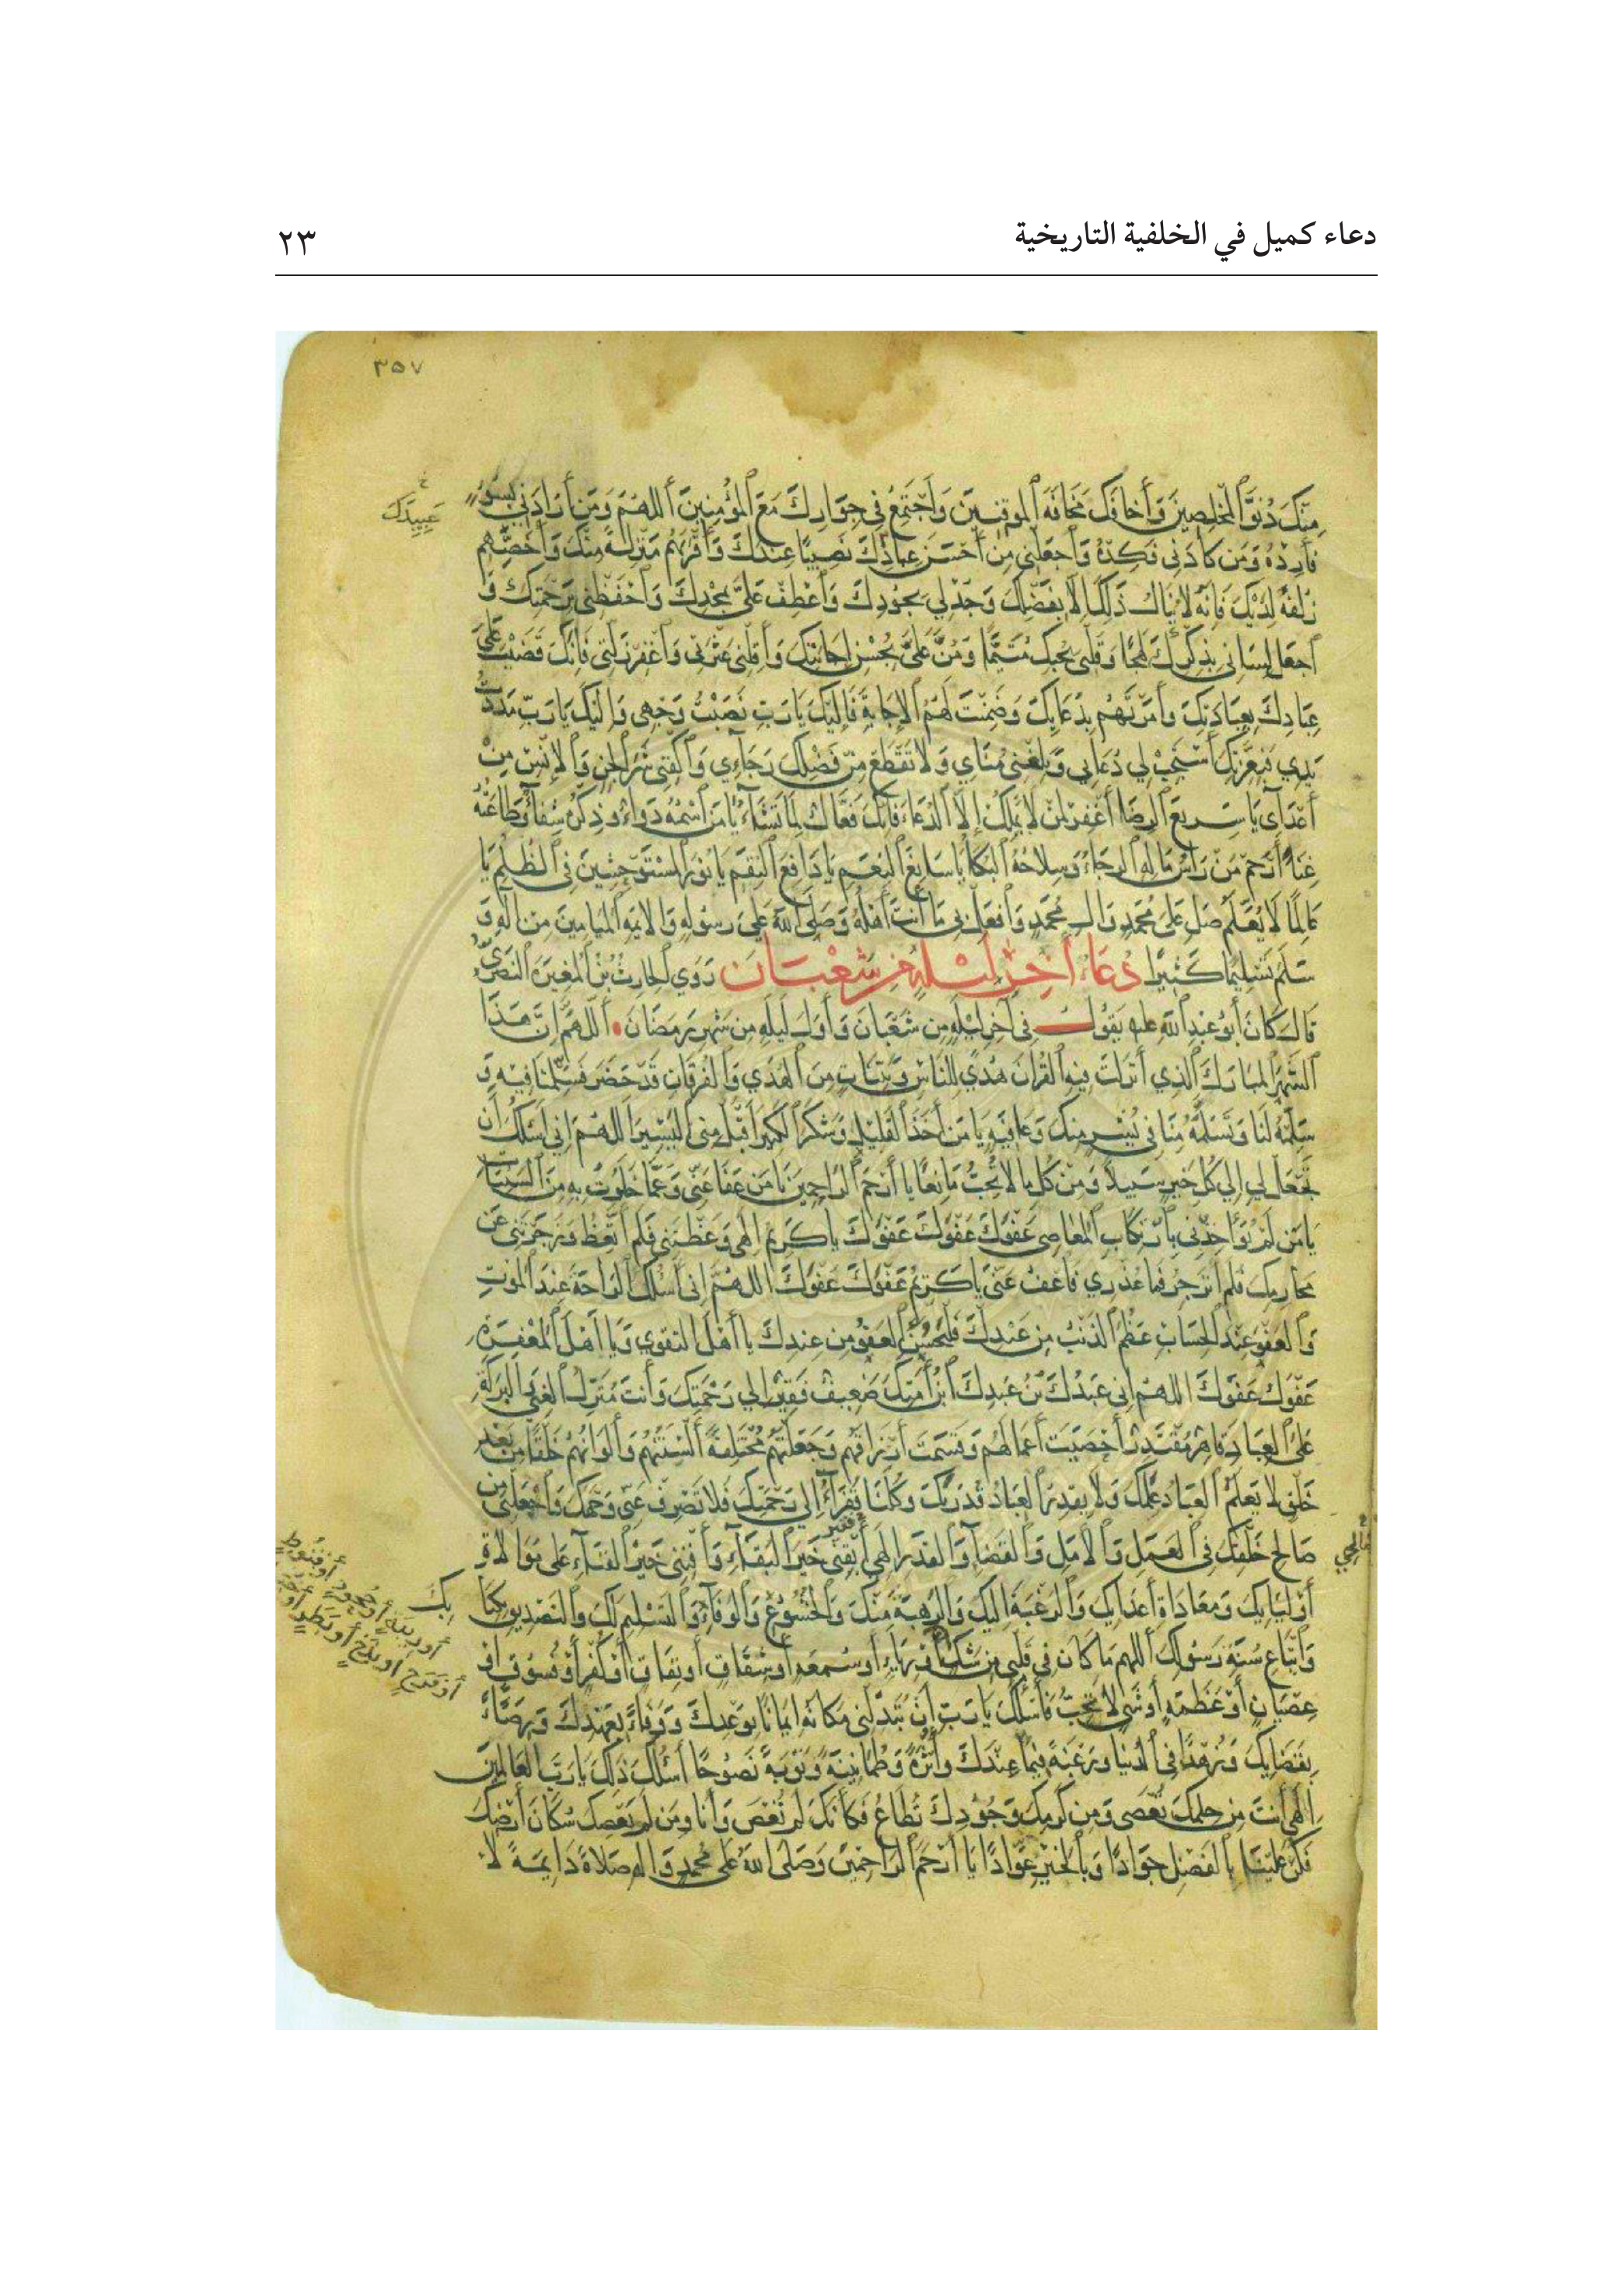 دعاء كميل في الخلفية التاريخية
٢٣
٣٥٧
مِنْكَ دُنُوَّ الْمُخْلِصِينَ وَأَخَافَكَ مَخَافَةَ الْمُوقِنِينَ وَأَجْتَمِعَ فِي جِوَارِكَ مَعَ الْمُؤْمِنِينَ أَللّٰهُمَّ وَمَنْ أَرَادَنِي بِسُوءٍ
عَبِيدِكَ
فَأَرِدْهُ وَمَنْ كَادَنِي فَكِدْهُ وَاجْعَلْنِي مِنْ أَحْسَنِ عِبَادِكَ نَصِيبًا عِنْدَكَ وَأَقْرَبِهِمْ مَنْزِلَةً مِنْكَ وَأَخَصِّهِمْ
زُلْفَةً لَدَيْكَ فَإِنَّهُ لَا يُنَالُ ذَلِكَ إِلَّا بِفَضْلِكَ وَجُدْ لِي بِجُودِكَ وَاعْطِفْ عَلَيَّ بِمَجْدِكَ وَاحْفَظْنِي بِرَحْمَتِكَ وَ
اجْعَلْ لِسَانِي بِذِكْرِكَ لَهِجًا وَقَلْبِي بِحُبِّكَ مُتَيَّمًا وَمُنَّ عَلَيَّ بِحُسْنِ إِجَابَتِكَ وَأَقِلْنِي عَثْرَتِي وَاغْفِرْ زَلَّتِي فَإِنَّكَ قَضَيْتَ عَلَى
عِبَادِكَ بِعِبَادَتِكَ وَأَمَرْتَهُمْ بِدُعَائِكَ وَضَمِنْتَ لَهُمُ الْإِجَابَةَ فَإِلَيْكَ يَا رَبِّ نَصَبْتُ وَجْهِي وَإِلَيْكَ يَا رَبِّ مَدَدْتُ
يَدِي فَبِعِزَّتِكَ اسْتَجِبْ لِي دُعَائِي وَبَلِّغْنِي مُنَايَ وَلَا تَقْطَعْ مِنْ فَضْلِكَ رَجَائِي وَاكْفِنِي شَرَّ الْجِنِّ وَالْإِنْسِ مِنْ
أَعْدَائِي يَا سَرِيعَ الرِّضَا اغْفِرْ لِمَنْ لَا يَمْلِكُ إِلَّا الدُّعَاءَ فَإِنَّكَ فَعَّالٌ لِمَا تَشَاءُ يَا مَنِ اسْمُهُ دَوَاءٌ وَذِكْرُهُ شِفَاءٌ وَطَاعَتُهُ
غِنَاءٌ ارْحَمْ مَنْ رَأْسُ مَالِهِ الرَّجَاءُ وَسِلَاحُهُ الْبُكَاءُ يَا سَابِغَ النِّعَمِ يَا دَافِعَ النِّقَمِ يَا نُورَ الْمُسْتَوْحِشِينَ فِي الظُّلَمِ يَا
عَالِمًا لَا يُعَلَّمُ صَلِّ عَلَى مُحَمَّدٍ وَآلِ مُحَمَّدٍ وَافْعَلْ بِي مَا أَنْتَ أَهْلُهُ وَصَلَّى اللهُ عَلَى رَسُولِهِ وَالْأَئِمَّةِ الْمَيَامِينَ مِنْ آلِهِ وَ
سَلَّمَ تَسْلِيمًا كَثِيرًا دُعَاءُ آخِرِ لَيْلَةٍ مِنْ شَعْبَانَ رَوَى الْحَارِثُ بْنُ الْمُغِيرَةِ النَّصْرِيُّ
قَالَ كَانَ أَبُو عَبْدِ اللهِ عليه يَقُولُ فِي آخِرِ لَيْلَةٍ مِنْ شَعْبَانَ وَأَوَّلِ لَيْلَةٍ مِنْ شَهْرِ رَمَضَانَ أَللّٰهُمَّ إِنَّ هَذَا
الشَّهْرَ الْمُبَارَكَ الَّذِي أَنْزَلْتَ فِيهِ الْقُرْآنَ هُدًى لِلنَّاسِ وَبَيِّنَاتٍ مِنَ الْهُدَى وَالْفُرْقَانِ قَدْ حَضَرَ فَسَلِّمْنَا فِيهِ وَ
سَلِّمْهُ لَنَا وَتَسَلَّمْهُ مِنَّا فِي يُسْرٍ مِنْكَ وَعَافِيَةٍ يَا مَنْ أَخَذَ الْقَلِيلَ وَشَكَرَ الْكَثِيرَ اقْبَلْ مِنِّي الْيَسِيرَ اللّٰهُمَّ إِنِّي أَسْئَلُكَ أَنْ
تَجْعَلَ لِي إِلَى كُلِّ خَيْرٍ سَبِيلًا وَمِنْ كُلِّ مَا لَا تُحِبُّ مَانِعًا يَا أَرْحَمَ الرَّاحِمِينَ يَا مَنْ عَفَا عَنِّي وَعَمَّا خَلَوْتُ بِهِ مِنَ السَّيِّئَاتِ
يَا مَنْ لَمْ يُؤَاخِذْنِي بِارْتِكَابِ الْمَعَاصِي عَفْوَكَ عَفْوَكَ عَفْوَكَ يَا كَرِيمُ إِلٰهِي وَعَظْتَنِي فَلَمْ أَتَّعِظْ وَزَجَرْتَنِي عَنْ
مَحَارِمِكَ فَلَمْ أَنْزَجِرْ فَمَا عُذْرِي فَاعْفُ عَنِّي يَا كَرِيمُ عَفْوَكَ عَفْوَكَ اللّٰهُمَّ إِنِّي أَسْئَلُكَ الرَّاحَةَ عِنْدَ الْمَوْتِ
وَالْعَفْوَ عِنْدَ الْحِسَابِ عَظُمَ الذَّنْبُ مِنْ عَبْدِكَ فَلْيَحْسُنِ الْعَفْوُ مِنْ عِنْدِكَ يَا أَهْلَ التَّقْوَى وَيَا أَهْلَ الْمَغْفِرَةِ
عَفْوَكَ عَفْوَكَ اللّٰهُمَّ إِنِّي عَبْدُكَ بْنُ عَبْدِكَ ابْنُ أَمَتِكَ ضَعِيفٌ فَقِيرٌ إِلَى رَحْمَتِكَ وَأَنْتَ مُنْزِلُ الْغِنَى الْبَرَكَةِ
عَلَى الْعِبَادِ قَاهِرٌ مُقْتَدِرٌ أَحْصَيْتَ أَعْمَالَهُمْ وَقَسَمْتَ أَرْزَاقَهُمْ وَجَعَلْتَهُمْ مُخْتَلِفَةً أَلْسِنَتُهُمْ وَأَلْوَانُهُمْ خَلْقًا مِنْ بَعْدِ
خَلْقٍ لَا يَعْلَمُ الْعِبَادُ عِلْمَكَ وَلَا يَقْدِرُ الْعِبَادُ قَدْرَكَ وَكُلُّنَا فُقَرَاءُ إِلَى رَحْمَتِكَ فَلَا تَصْرِفْ عَنِّي وَجْهَكَ وَاجْعَلْنِي مِنْ
صَالِحِ خَلْقِكَ فِي الْعَمَلِ وَالْأَمَلِ وَالْقَضَاءِ وَالْقَدَرِ إِلٰهِي أَبْقِنِي خَيْرَ الْبَقَاءِ وَأَفْنِنِي خَيْرَ الْفَنَاءِ عَلَى مُوَالَاةِ
أَوْلِيَائِكَ وَمُعَادَاةِ أَعْدَائِكَ وَالرَّغْبَةِ إِلَيْكَ وَالرَّهْبَةِ مِنْكَ وَالْخُشُوعِ وَالْوَفَاءِ وَالتَّسْلِيمِ لَكَ وَالتَّصْدِيقِ بِكِتَابِكَ
وَاتِّبَاعِ سُنَّةِ رَسُولِكَ اللّٰهُمَّ مَا كَانَ فِي قَلْبِي مِنْ شَكٍّ أَوْ رِيَاءٍ أَوْ سُمْعَةٍ أَوْ شِقَاقٍ أَوْ نِفَاقٍ أَوْ كُفْرٍ أَوْ فُسُوقٍ أَوْ
أَوْ رِيبَةٍ أَوْ جُحُودٍ أَوْ قُنُوطٍ
أَوْ فَرَحٍ أَوْ بَذَخٍ أَوْ بَطَرٍ أَوْ
عِصْيَانٍ أَوْ عَظَمَةٍ أَوْ شَيْءٍ لَا تُحِبُّ فَأَسْئَلُكَ يَا رَبِّ أَنْ تُبَدِّلَنِي مَكَانَهُ إِيمَانًا بِوَعْدِكَ وَوَفَاءً بِعَهْدِكَ وَرِضًا
بِقَضَائِكَ وَزُهْدًا فِي الدُّنْيَا وَرَغْبَةً فِيمَا عِنْدَكَ وَأَثَرَةً وَطُمَأْنِينَةً وَتَوْبَةً نَصُوحًا أَسْئَلُكَ ذَلِكَ يَا رَبَّ الْعَالَمِينَ
إِلٰهِي أَنْتَ مِنْ حِلْمِكَ تُعْصَى وَمِنْ كَرَمِكَ وَجُودِكَ تُطَاعُ فَكَأَنَّكَ لَمْ تُعْصَ وَأَنَا وَمَنْ لَمْ يَعْصِكَ سُكَّانُ أَرْضِكَ
فَكُنْ عَلَيْنَا بِالْفَضْلِ جَوَادًا وَبِالْخَيْرِ عَوَّادًا يَا أَرْحَمَ الرَّاحِمِينَ وَصَلَّى اللهُ عَلَى مُحَمَّدٍ وَآلِهِ صَلَاةً دَائِمَةً لَا